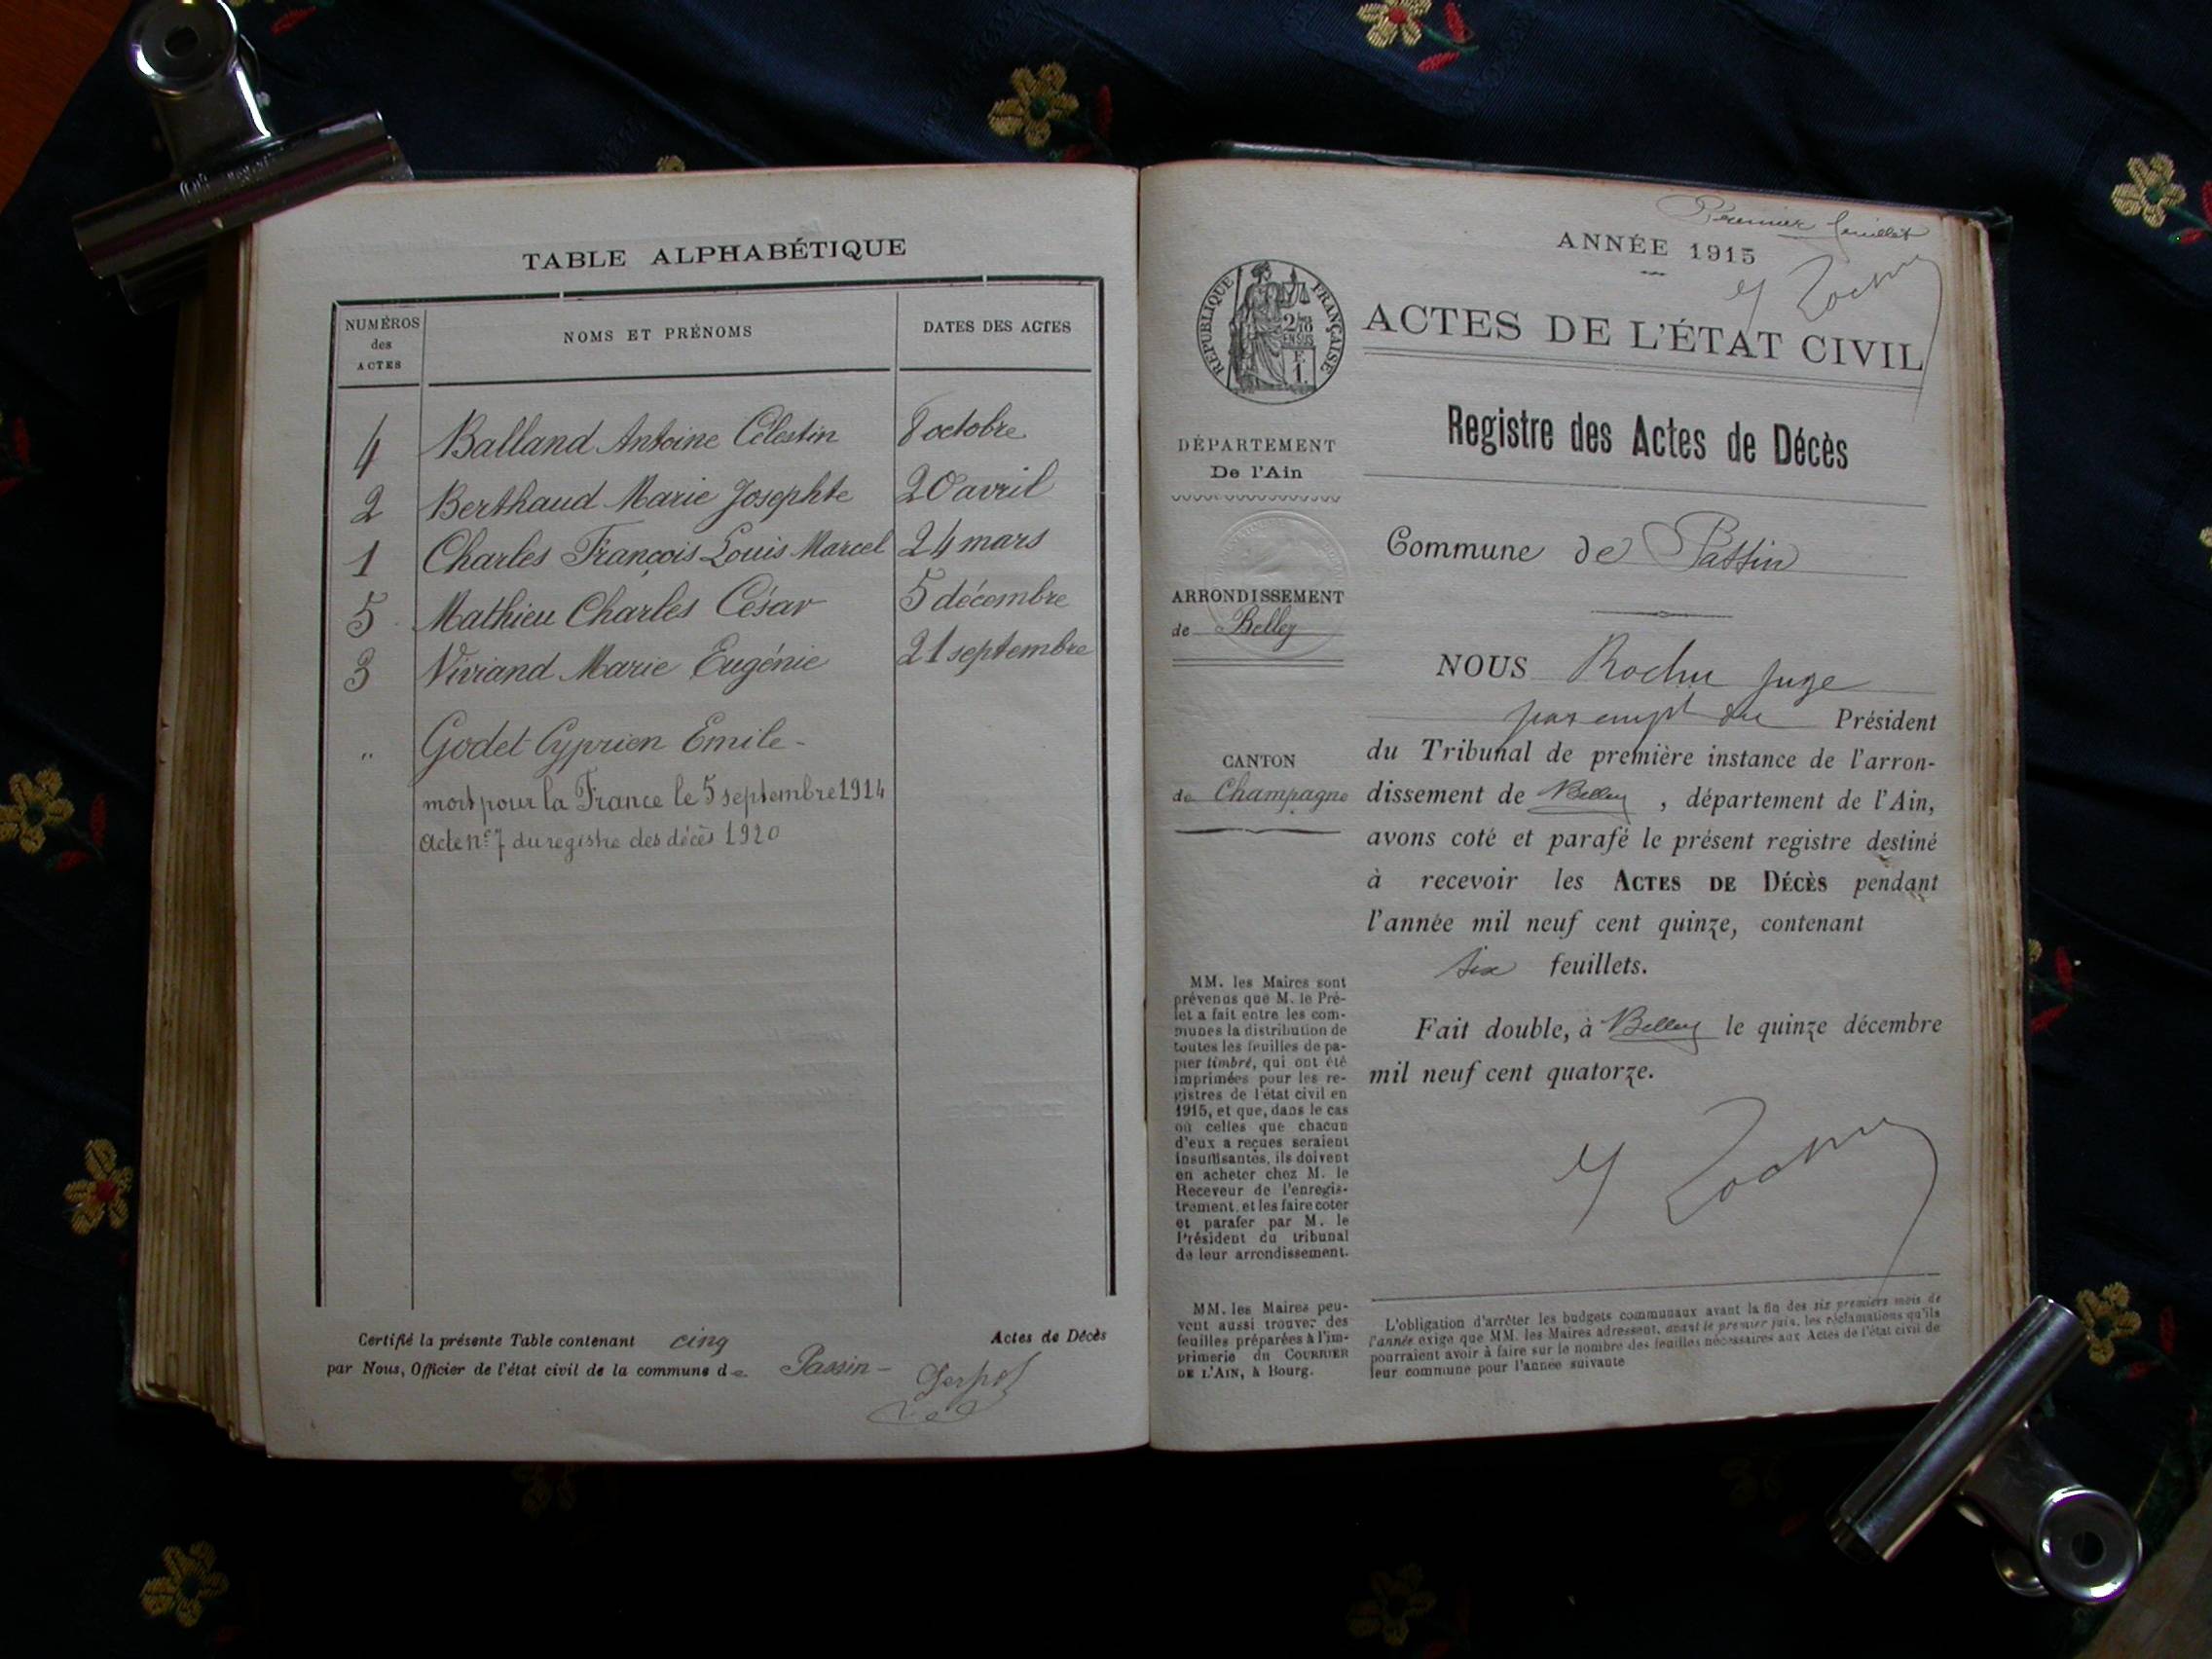 TABLE ALPHABÉTIQUE
NUMÉROS des ACTES
NOMS ET PRÉNOMS
DATES DES ACTES
4 Balland Antoine Célestin 8 octobre
2 Berthaud Marie Josephte 20 avril
1 Charles François Louis Marcel 24 mars
5 Mathieu Charles César 5 décembre
3 Viviand Marie Eugénie 21 septembre
" Godet Cyprien Emile -
mort pour la France le 5 septembre 1914
acte n° 7 du registre des décès 1920
Certifié la présente Table contenant cinq Actes de Décès
par Nous, Officier de l'état civil de la commune de Passin -
Premier feuillet
ANNÉE 1915
RÉPUBLIQUE FRANÇAISE
ACTES DE L'ÉTAT CIVIL
Registre des Actes de Décès
DÉPARTEMENT
De l'Ain
ARRONDISSEMENT
de Belley
CANTON
de Champagne
MM. les Maires sont
prévenus que M. le Pré-
fet a fait entre les com-
munes la distribution de
toutes les feuilles de pa-
pier timbré, qui ont été
imprimées pour les re-
gistres de l'état civil en
1915, et que, dans le cas
où celles que chacun
d'eux a reçues seraient
insuffisantes, ils doivent
en acheter chez M. le
Receveur de l'enregis-
trement, et les faire coter
et parafer par M. le
Président du tribunal
de leur arrondissement.
MM. les Maires peu-
vent aussi trouver des
feuilles préparées à l'im-
primerie du COURRIER
DE L'AIN, à Bourg.
Commune de Passin
NOUS Rochu Juge
par empt du Président
du Tribunal de première instance de l'arron-
dissement de Belley, département de l'Ain,
avons coté et parafé le présent registre destiné
à recevoir les ACTES DE DÉCÈS pendant
l'année mil neuf cent quinze, contenant
six feuillets.
Fait double, à Belley le quinze décembre
mil neuf cent quatorze.
L'obligation d'arrêter les budgets communaux avant la fin des six premiers mois de
l'année exige que MM. les Maires adressent, avant le premier juin, les réclamations qu'ils
pourraient avoir à faire sur le nombre des feuilles nécessaires aux Actes de l'état civil de
leur commune pour l'année suivante